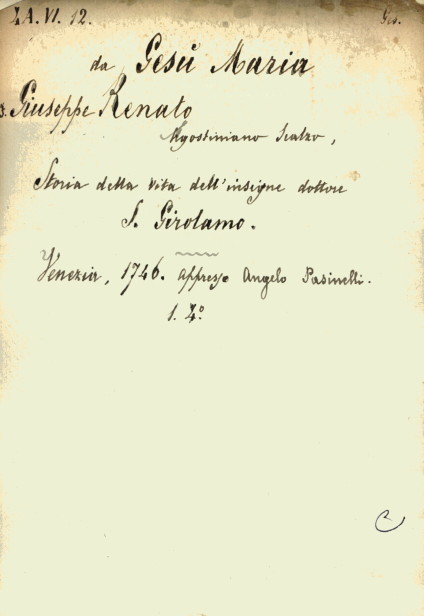 LA. VI. 12. Ges.
da Gesù Maria
Giuseppe Renato
Agostiniano Scalzo,
Storia della vita dell'insigne dottore
S. Girolamo.
Venezia, 1746. appresso Angelo Pasinelli.
1. 4.º